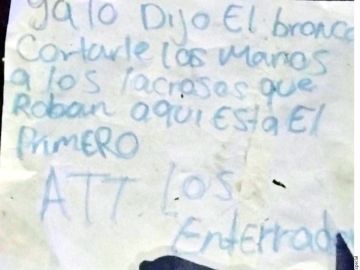 ya lo Dijo El bronco
Cortarle los Manos
a los lacrosos que
Roban aqui Esta El
PrimERO
ATT Los
Enterrado